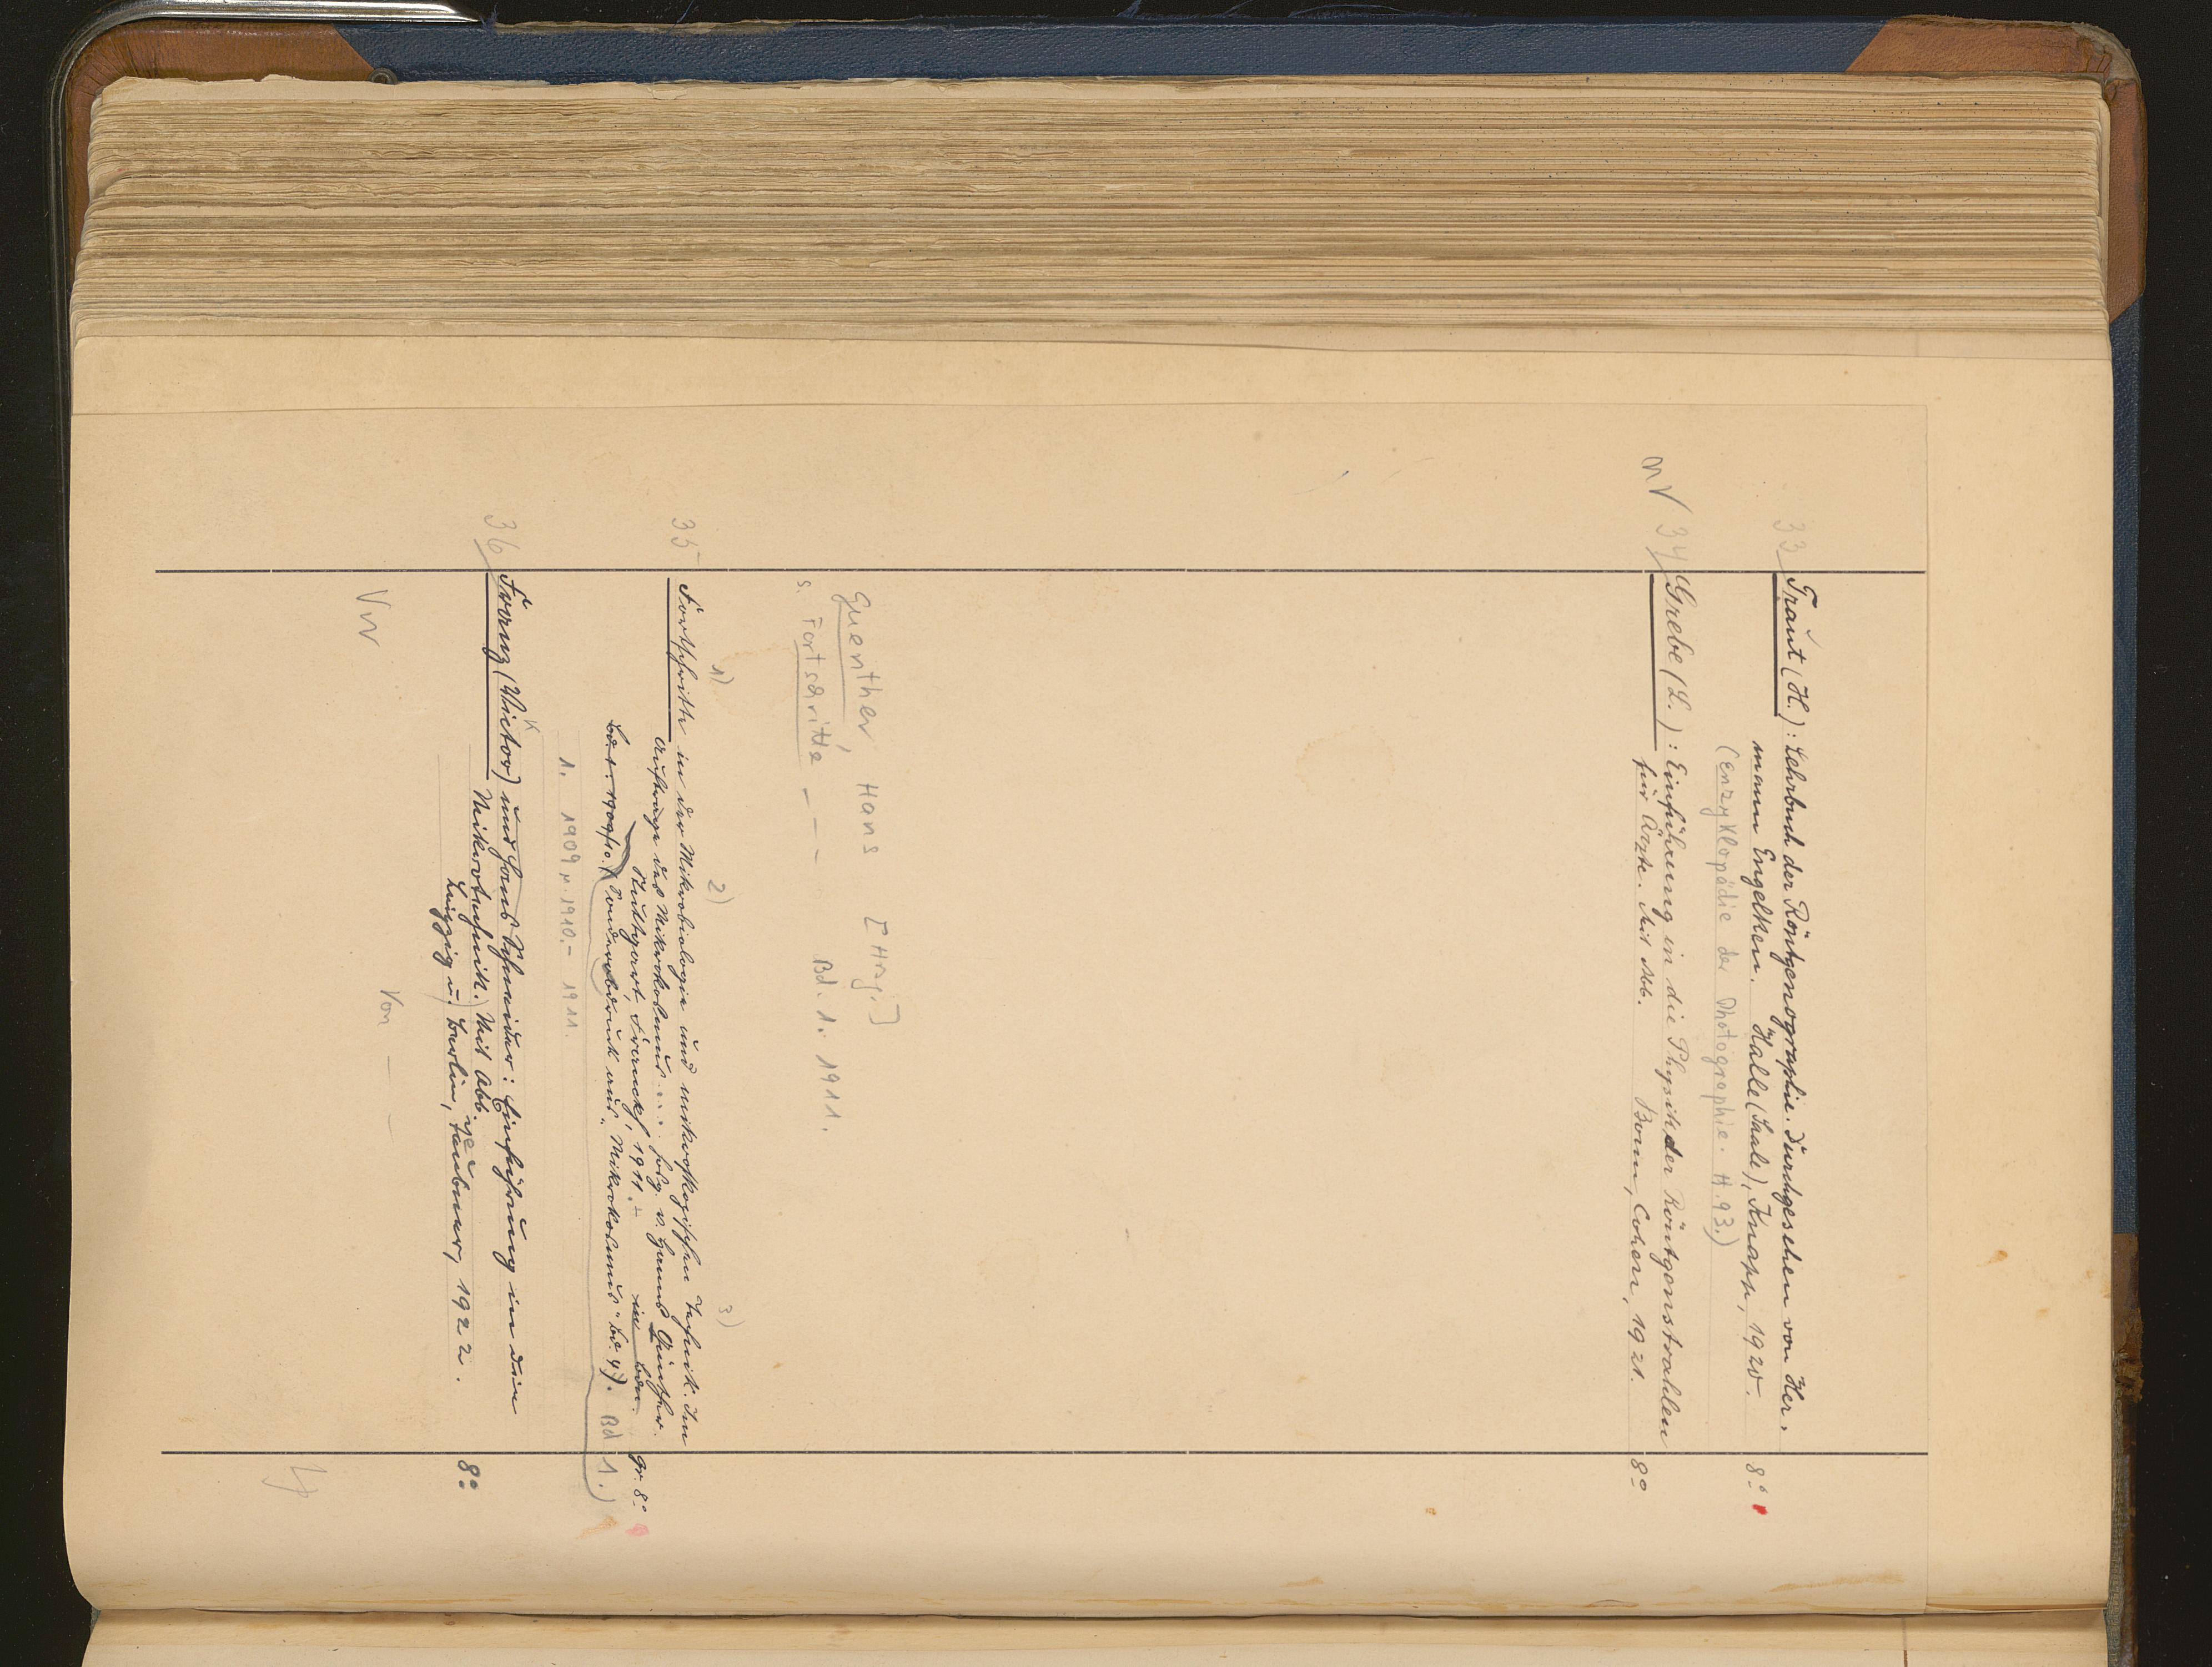 33 Traut (H.): Lehrbuch der Röntgenographie. Durchgesehen von Her-
mann Engelken. Halle (Saale), Knapp, 1920. 8°
(Enzyklopädie der Photographie. H. 93.)
nV 34 Grebe (L.): Einführung in die Physik der Röntgenstrahlen
für Ärzte. Mit Abb. Bonn, Cohen, 1921. 8°
Guenther, Hans [Hrsg.]
s. Fortschritte - - - Bd. 1. 1911.
1) 2) 3)
35 Fortschritte in der Mikrobiologie und mikroskopischen Technik. Im
Auftrage des Mikrokosmos ... hrg. v. Hanns Günther.
Stuttgart, Franckh, 1911. - gr. 8°
Bd 1. 1909/10. (Sonderabdruck aus "Mikrokosmos" Bd. 4). Bd 1.)
1. 1909 u. 1910. - 1911.
36 Franz (Victor) und Hans Schneider: Einführung in die
Mikrotechnik. Mit Abb.
Leipzig u. Berlin, Teubner, 1922. 8°
Von - - -
VV